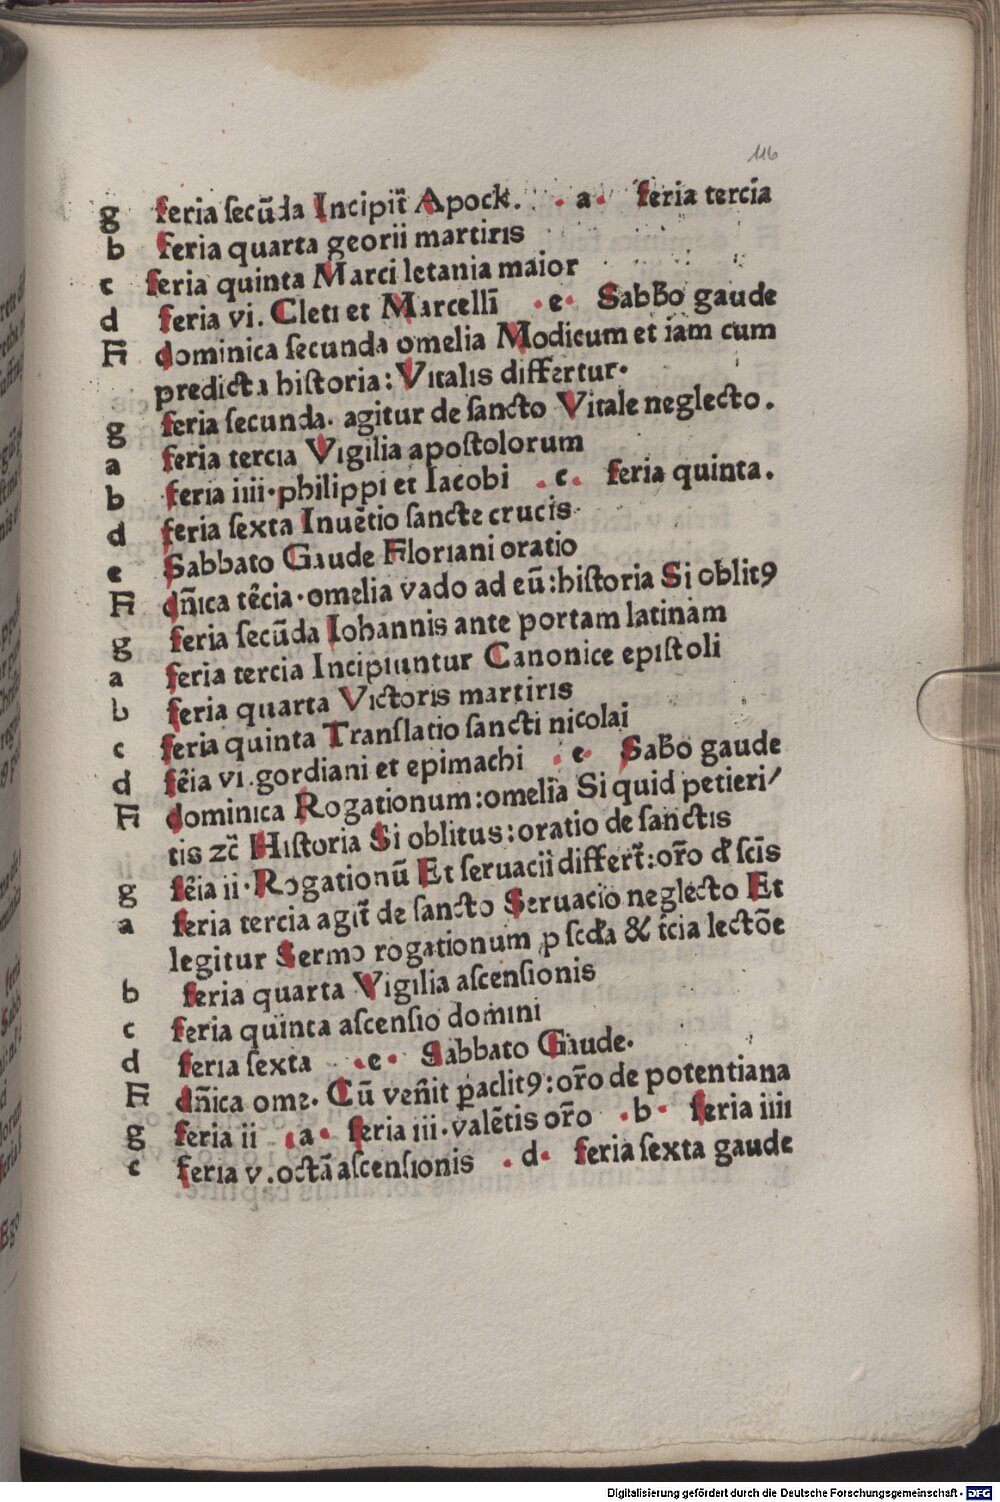 116
g feria secūda Incipit̄ Apock. . a. feria tercia
b feria quarta georii martiris
c feria quinta Marci letania maior
d feria vi. Cleti et Marcelli̅ . e. Sabb̄o gaude
F dominica secunda omelia Modicum et iam cum
predicta historia: Vitalis differtur.
g feria secunda. agitur de sancto Vitale neglecto.
a feria tercia Vigilia apostolorum
b feria iiii. philippi et Iacobi . c. feria quinta.
d feria sexta Inuētio sancte crucis
e Sabbato Gaude Floriani oratio
F dn̄ica tēcia. omelia vado ad eū: historia Si oblitꝯ
g feria secūda Iohannis ante portam latinam
a feria tercia Incipiuntur Canonice epistoli
b feria quarta Victoris martiris
c feria quinta Translatio sancti nicolai
d fēia vi. gordiani et epimachi . e. Sab̄o gaude
F dominica Rogationum: omelia Si quid petieri/
tis zc̄ Historia Si oblitus: oratio de sanctis
g fēia ii. Rogationū Et seruacii differt̄: or̄o d̄ sc̄is
a feria tercia agit̄ de sancto Seruacio neglecto Et
legitur Sermo rogationum p scd̄a & t̄cia lectōe
b feria quarta Vigilia ascensionis
c feria quinta ascensio domini
d feria sexta . e. Sabbato Gaude.
F dn̄ica ome. Cū ven̄it p̄aclitꝯ: or̄o de potentiana
g feria ii . a. feria iii. valētis or̄o . b. feria iiii
c feria v. octā ascensionis . d. feria sexta gaude
Digitalisierung gefördert durch die Deutsche Forschungsgemeinschaft - DFG